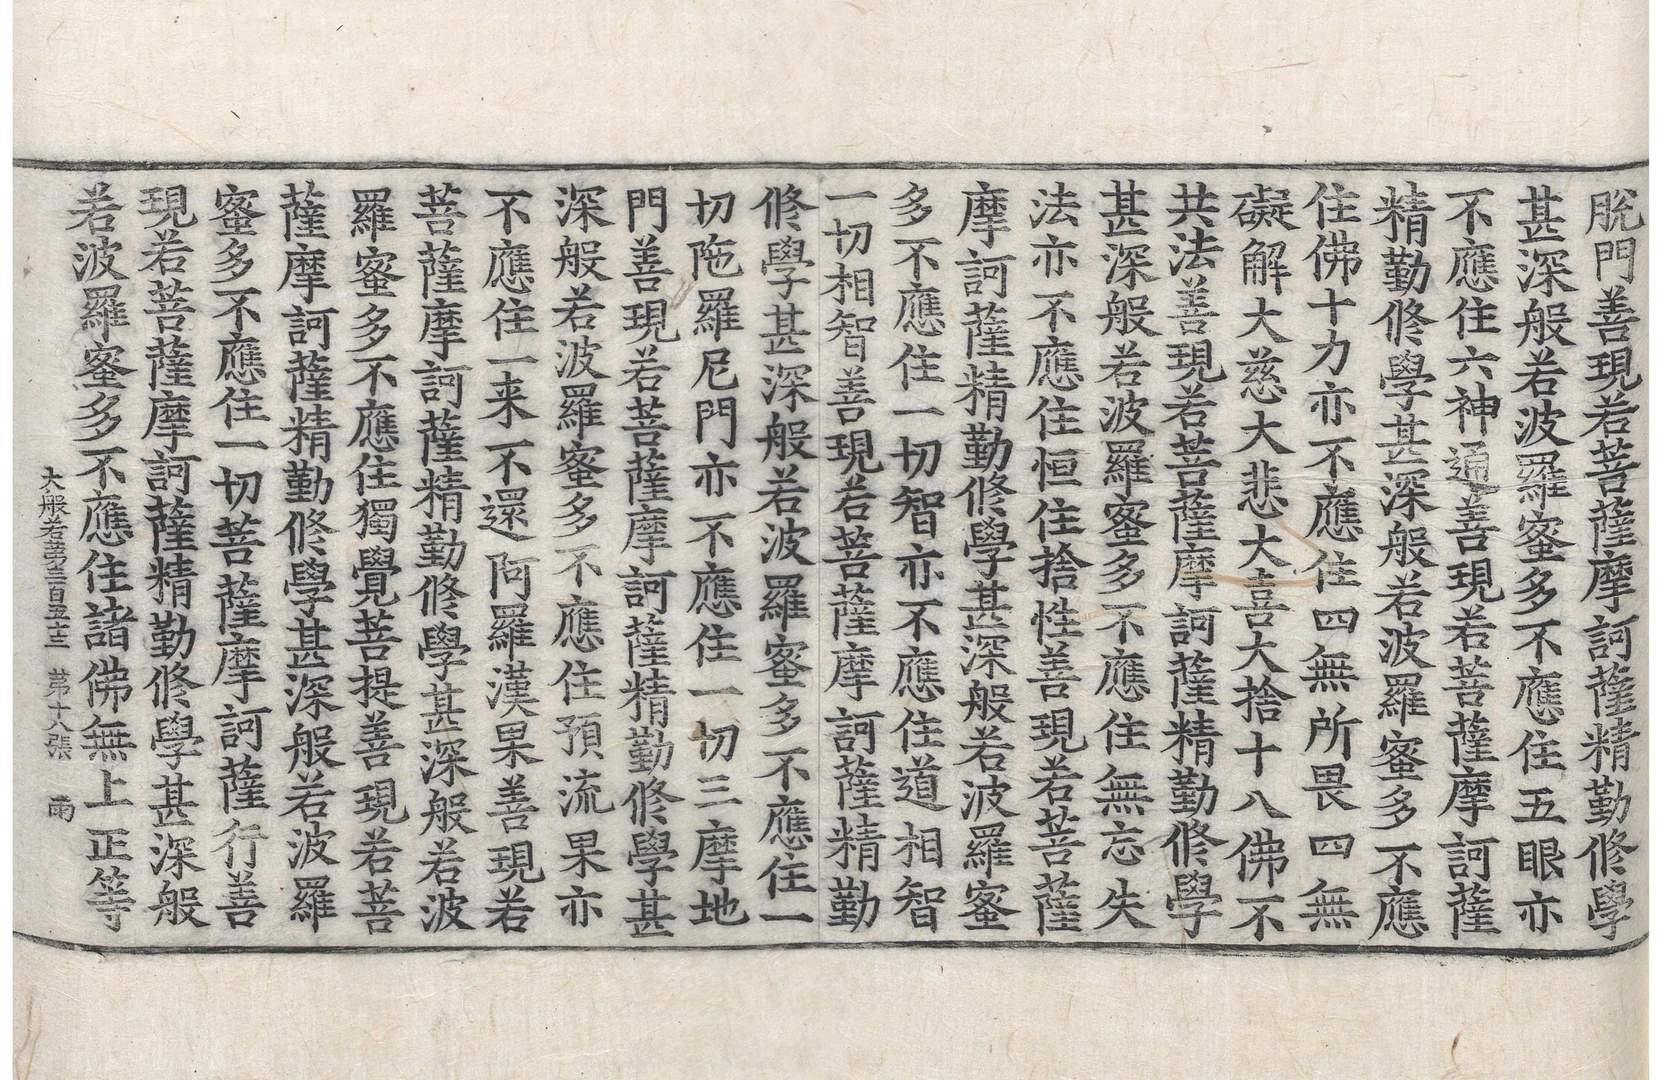 脫門善現若菩薩摩訶薩精勤修學
甚深般若波羅蜜多不應住五眼亦
不應住六神通善現若菩薩摩訶薩
精勤修學甚深般若波羅蜜多不應
住佛十力亦不應住四無所畏四無
礙解大慈大悲大喜大捨十八佛不
共法善現若菩薩摩訶薩精勤修學
甚深般若波羅蜜多不應住無忘失
法亦不應住恒住捨性善現若菩薩
摩訶薩精勤修學甚深般若波羅蜜
多不應住一切智亦不應住道相智
一切相智善現若菩薩摩訶薩精勤
修學甚深般若波羅蜜多不應住一
切陁羅尼門亦不應住一切三摩地
門善現若菩薩摩訶薩精勤修學甚
深般若波羅蜜多不應住預流果亦
不應住一来不還阿羅漢果善現若
菩薩摩訶薩精勤修學甚深般若波
羅蜜多不應住獨覺菩提善現若菩
薩摩訶薩精勤修學甚深般若波羅
蜜多不應住一切菩薩摩訶薩行善
現若菩薩摩訶薩精勤修學甚深般
若波羅蜜多不應住諸佛無上正等
大般若第三百五十三 第十八張 雨